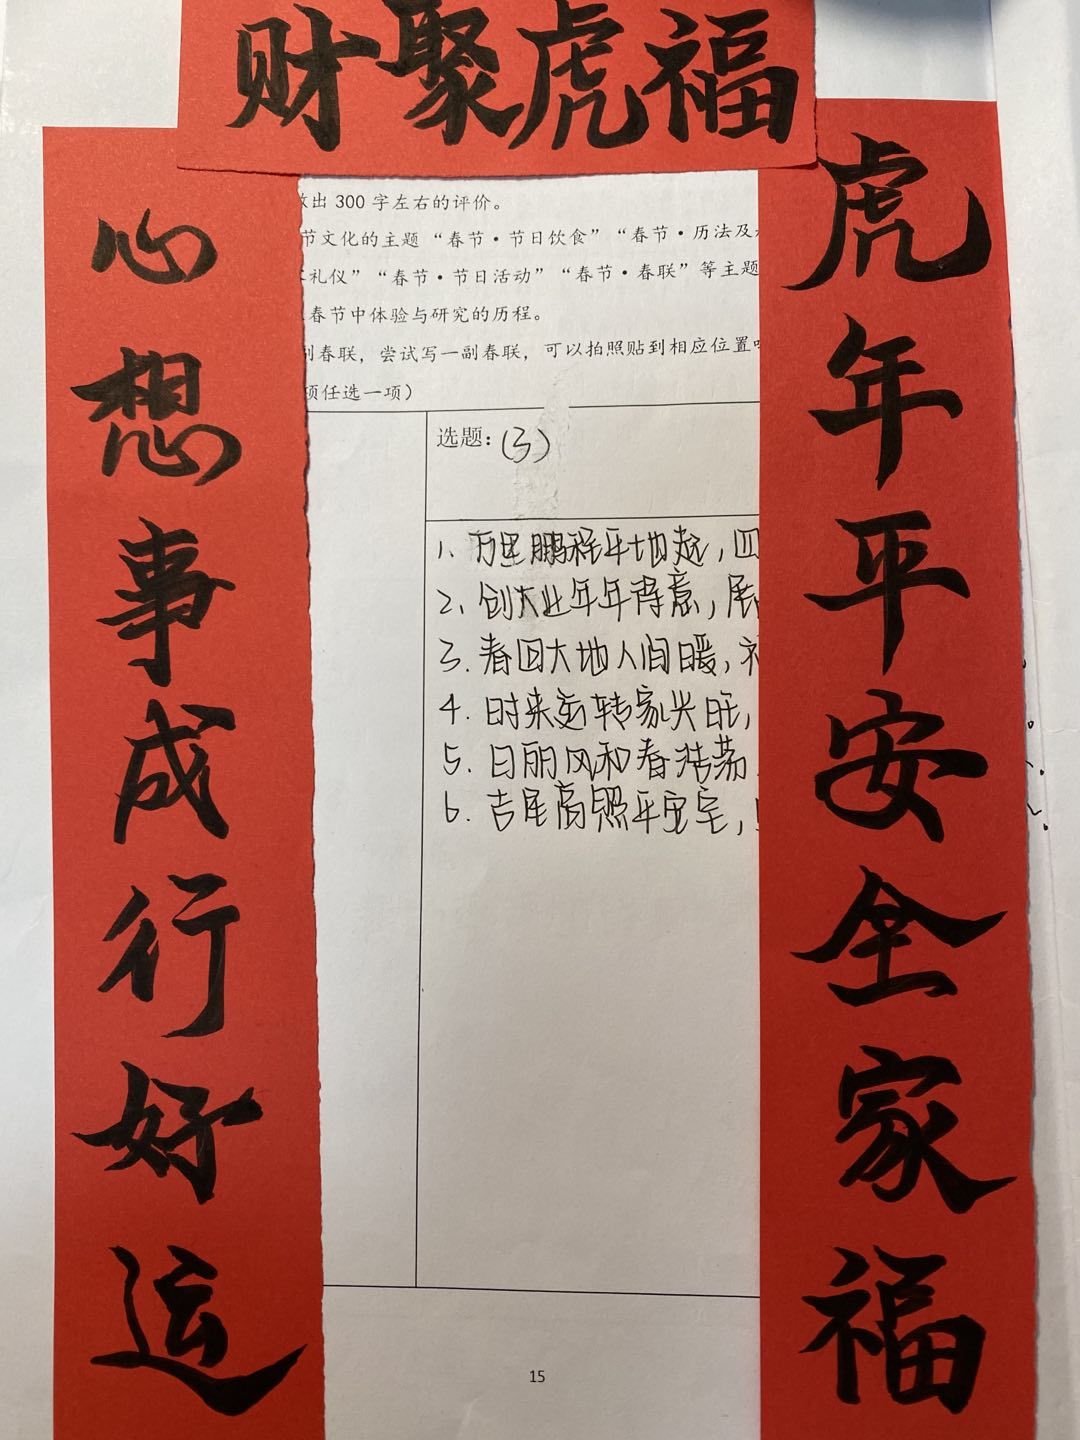 财聚虎福
虎年平安全家福
心想事成行好运
出 300 字左右的评价。
节文化的主题 “春节·节日饮食” “春节·历法及
礼仪” “春节·节日活动” “春节·春联” 等主题
春节中体验与研究的历程。
副春联，尝试写一副春联，可以拍照贴到相应位置
项任选一项）
选题：(3)
1、万里鹏程平地起，四
2、创大业年年得意，展
3、春回大地人间暖，
4、时来运转家兴旺，
5、日丽风和春浩荡
6、吉星高照平安宅，
15